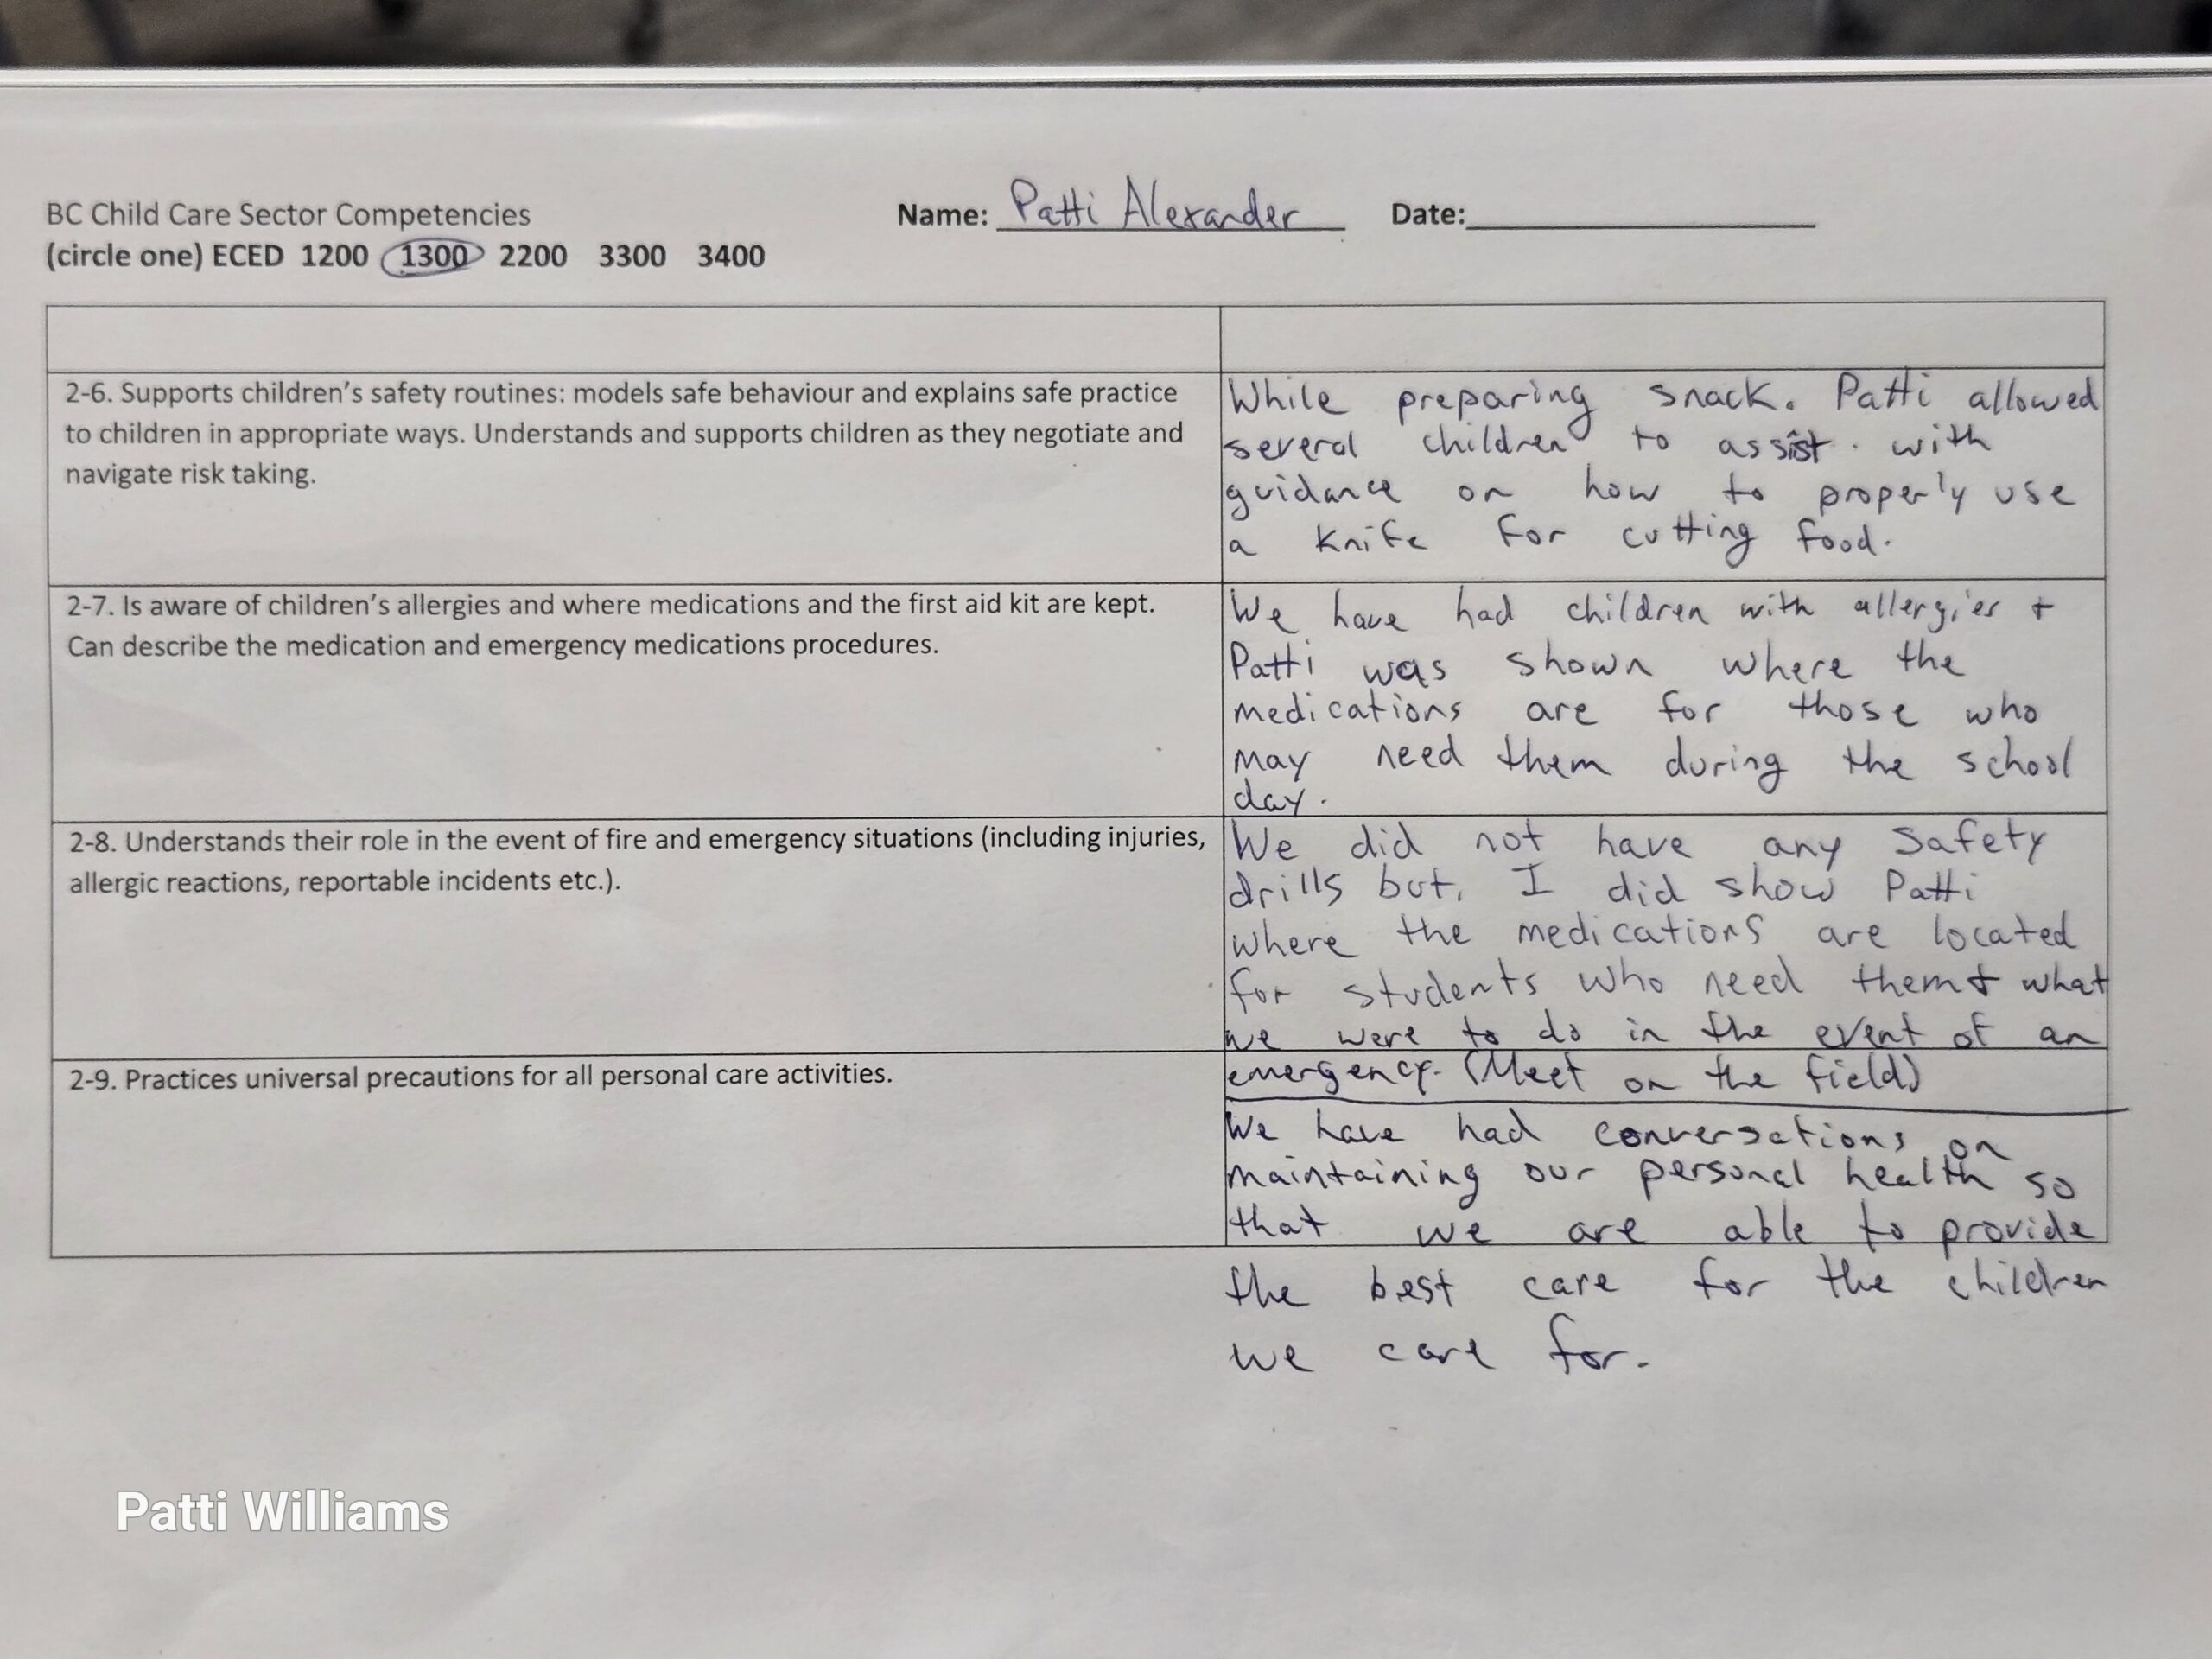 BC Child Care Sector Competencies
Name: Patti Alexander Date:
(circle one) ECED 1200 1300 2200 3300 3400
2-6. Supports children's safety routines: models safe behaviour and explains safe practice
to children in appropriate ways. Understands and supports children as they negotiate and
navigate risk taking.
While preparing snack. Patti allowed
several children to assist. with
guidance on how to properly use
a knife for cutting food.
2-7. Is aware of children's allergies and where medications and the first aid kit are kept.
Can describe the medication and emergency medications procedures.
We have had children with allergies +
Patti was shown where the
medications are for those who
may need them during the school
day.
2-8. Understands their role in the event of fire and emergency situations (including injuries,
allergic reactions, reportable incidents etc.).
We did not have any safety
drills but, I did show Patti
where the medications are located
for students who need them + what
we were to do in the event of an
emergency. (Meet on the field)
2-9. Practices universal precautions for all personal care activities.
We have had conversations on
maintaining our personal health so
that we are able to provide
the best care for the children
we care for.
Patti Williams